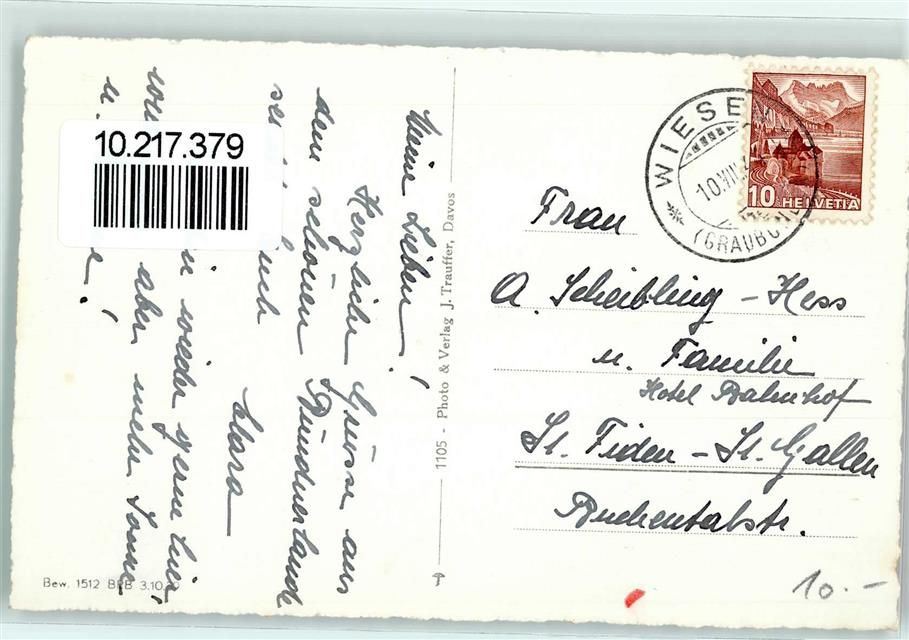 10.217.379
Meine Lieben!
Herzliche Grüsse aus
dem schönen Bündnerlande
Clara
wieder gern hier
u. aber mehr Sonne
1105 - Photo & Verlag J. Trauffer, Davos
Bew. 1512 BRB 3.10.
WIESEN
10.VII
(GRAUBÜN
10 HELVETIA
Frau
A. Scheibling - Hess
u. Familie
Hotel Bahnhof
St. Fiden - St. Gallen
Buchentalstr.
10.-